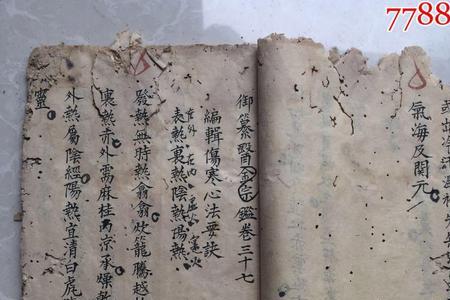 7788
氣海及關元
御纂醫金宗鑑卷三十七
編輯傷寒心法要訣
表熱裏熱陰熱陽熱
在外 在内 虛火 實火
發熱無時熱翕翕炊籠騰越
裏熱赤外需麻桂 凉承燥
外熱屬陰經陽熱宜清白虎
靈